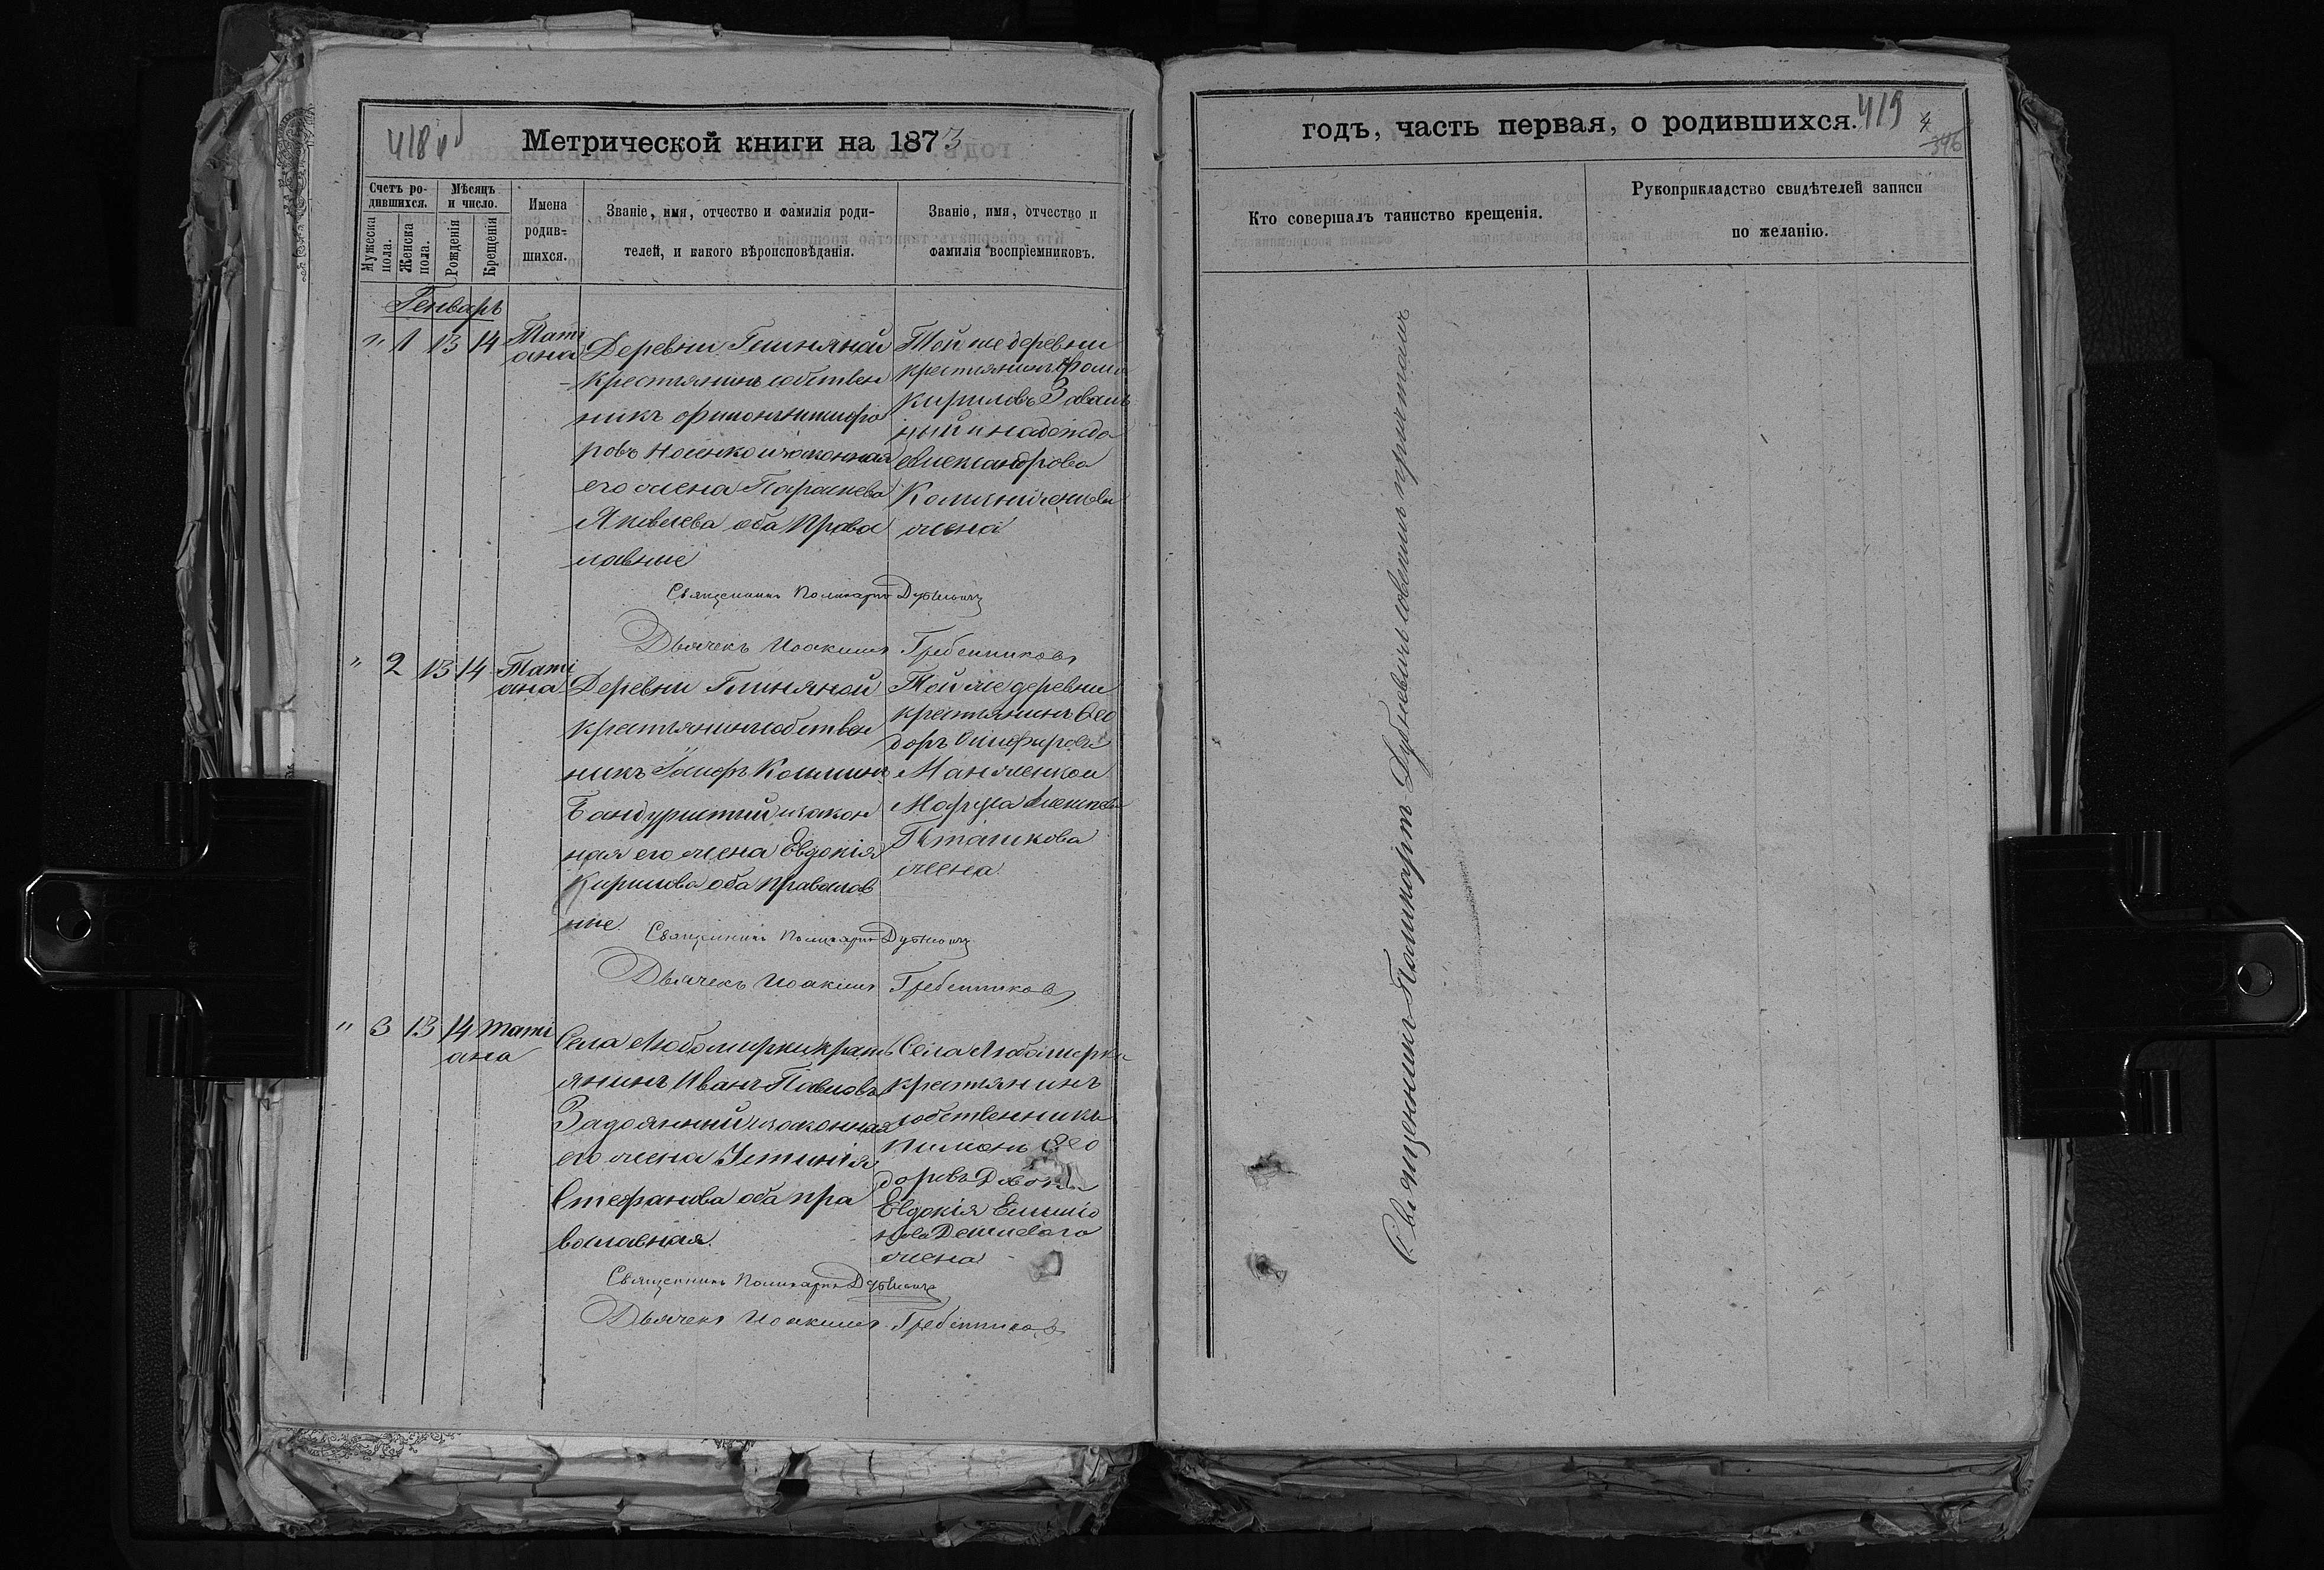 418 об
Метрической книги на 1873
Счетъ ро-
дившихся.
Мужеска
пола.
Женска
пола.
Мѣсяцъ
и число.
Рожденія
Крещенія
Имена
родив-
шихся.
Званіе, имя, отчество и фамилія роди-
телей, и какого вѣроисповѣданія.
Званіе, имя, отчество и
фамилія воспріемниковъ.
Генварь
" 1 13 14 Таті
ана
Деревни Глиняной
крестьянинъ собствен
никъ
ровъ законная
его жена Параскева
Яковлева оба Правос
лавные
Той же деревни
крестьянинъ Фома
Кириловъ
ный и Надежда
Александрова
жена
Священникъ Поликарпъ Дубневичъ
Дьячекъ Іоакимъ Гребенниковъ
" 2 13 14 Таті
ана
Деревни Глиняной
крестьянинъ собствен
никъ
Бандуристый и закон
ная его жена Евдокія
Кирилова оба православ
ные.
Той же деревни
крестьянинъ Ѳео
доръ
Марѳа
жена
Священникъ Поликарпъ Дубневичъ
Дьячекъ Іоакимъ Гребенниковъ
" 3 13 14 Таті
ана
Села Любомирки крест
янинъ Иванъ Павловъ
Задоянный и законная
его жена Устинія
Стефанова оба пра
вославная.
Села Любомирки
крестянинъ
собственникъ
Пимонъ Ѳео
доровъ
Евдокія
жена
Священникъ Поликарпъ Дубневичъ
Дьячекъ Іоакимъ Гребенниковъ
годъ, часть первая, о родившихся.
419
4
396
Кто совершалъ таинство крещенія.
Рукоприкладство свидѣтелей записи
по желанію.
Священникъ Поликарпъ Дубневичъ совсемъ причтомъ